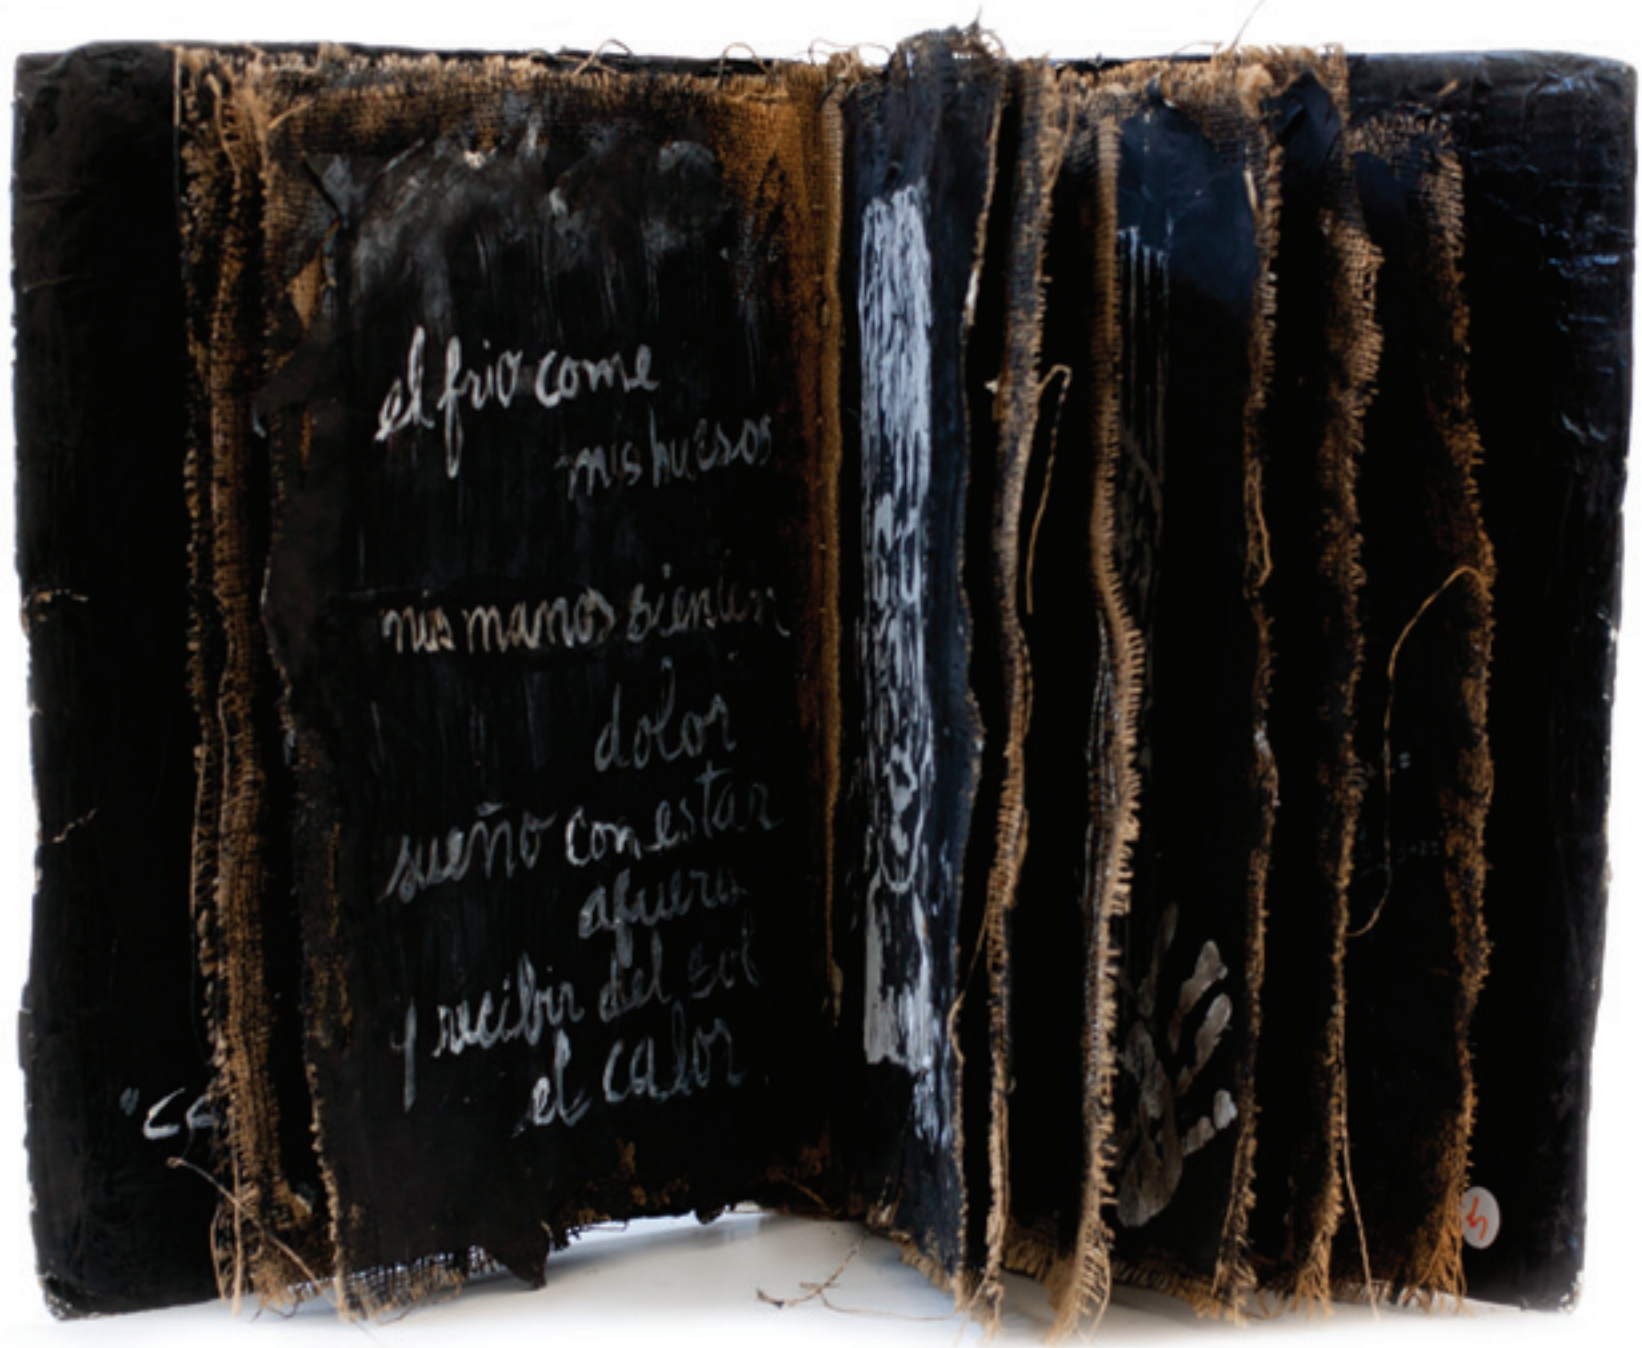 el frio come
mis huesos
mis manos sienten
dolor
sueño con estar
afuera
y recibir del sol
el calor.